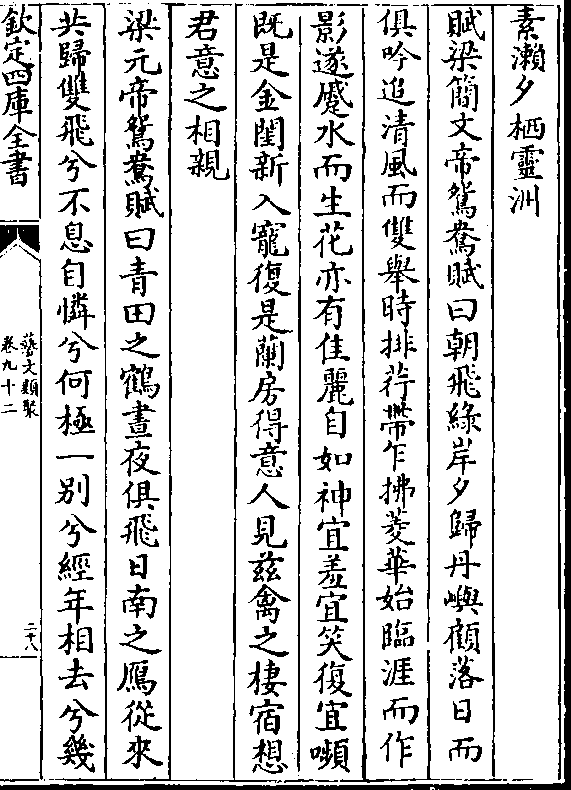 素瀨夕栖靈洲
賦梁簡文帝鴛鴦賦曰朝飛綠岸夕歸丹嶼顧落日而
俱吟追清風而雙舉時排荇帶乍拂菱華始臨涯而作
影遂蹙水而生花亦有佳麗自如神宜羞宜笑復宜嚬
既是金閨新入寵復是蘭房得意人見兹禽之棲宿想
君意之相親
梁元帝鴛鴦賦曰青田之鶴晝夜俱飛日南之鴈從來
共歸雙飛兮不息自憐兮何極一别兮經年相去兮幾
欽定四庫全書
藝文類聚
卷九十二
二十八